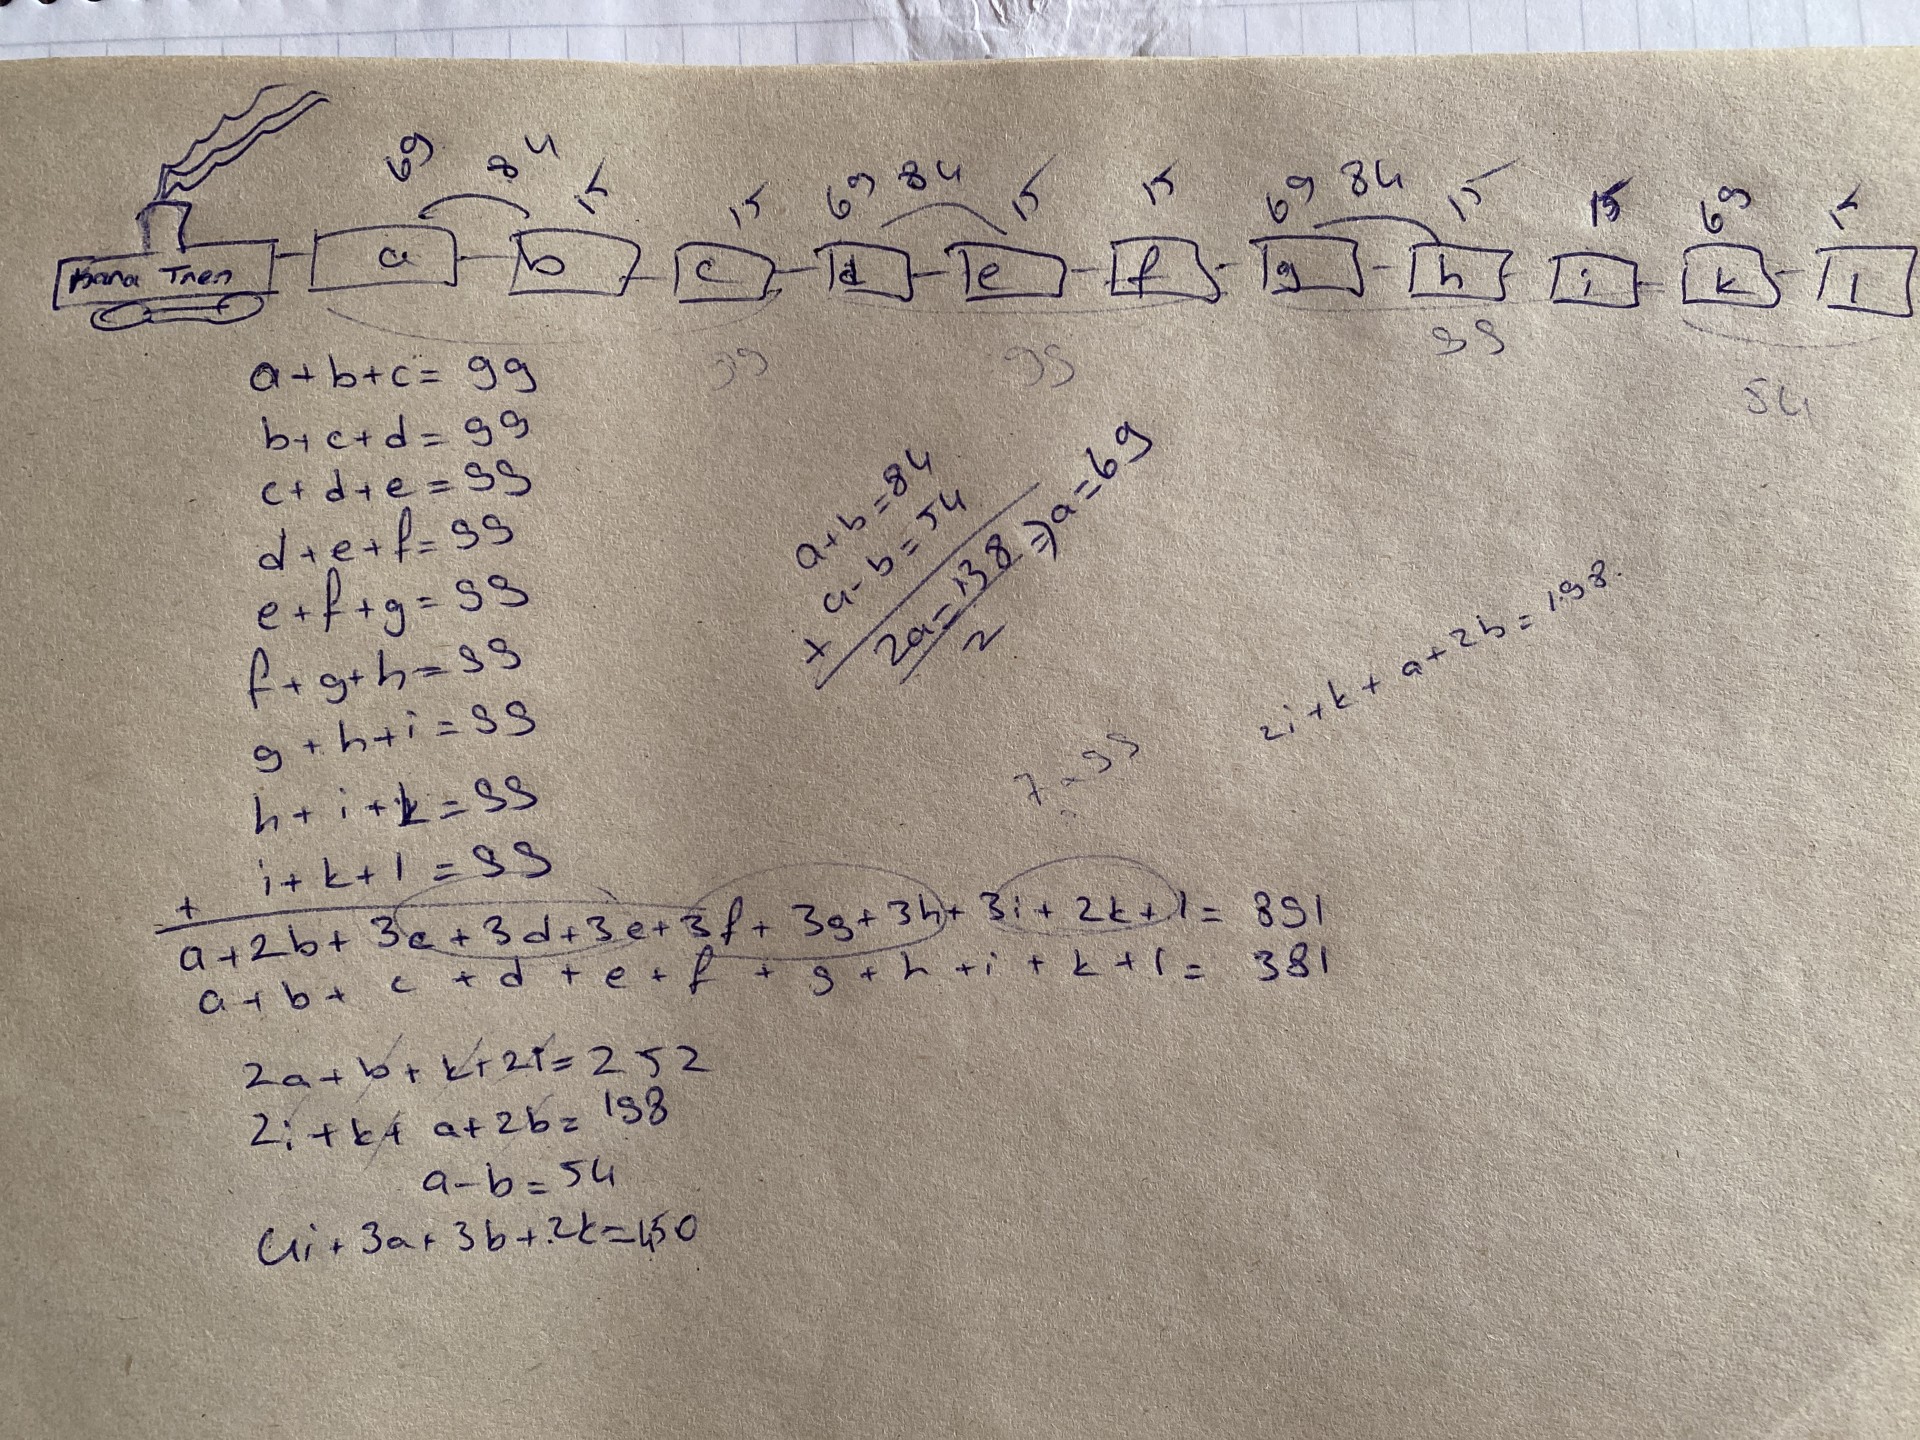 69 84 15 15 69 84 15 15 69 84 15 15 69 15
Kara Tren a b c d e f g h i k l
99 99 99 54
a+b+c= 99
b+c+d= 99
c+d+e=99
d+e+f=99
e+f+g=99
f+g+h=99
g+h+i=99
h+i+k=99
i+k+l=99
+
a+2b+3c+3d+3e+3f+3g+3h+3i+2k+l= 891
a+b+c+d+e+f+g+h+i+k+l= 381
2a+b+k+2i=252
2i+k+a+2b=198
a-b=54
4i+3a+3b+2k=450
a+b=84
a-b=54
+
2a=138 => a=69
2
7 99
2i+k+a+2b=198.